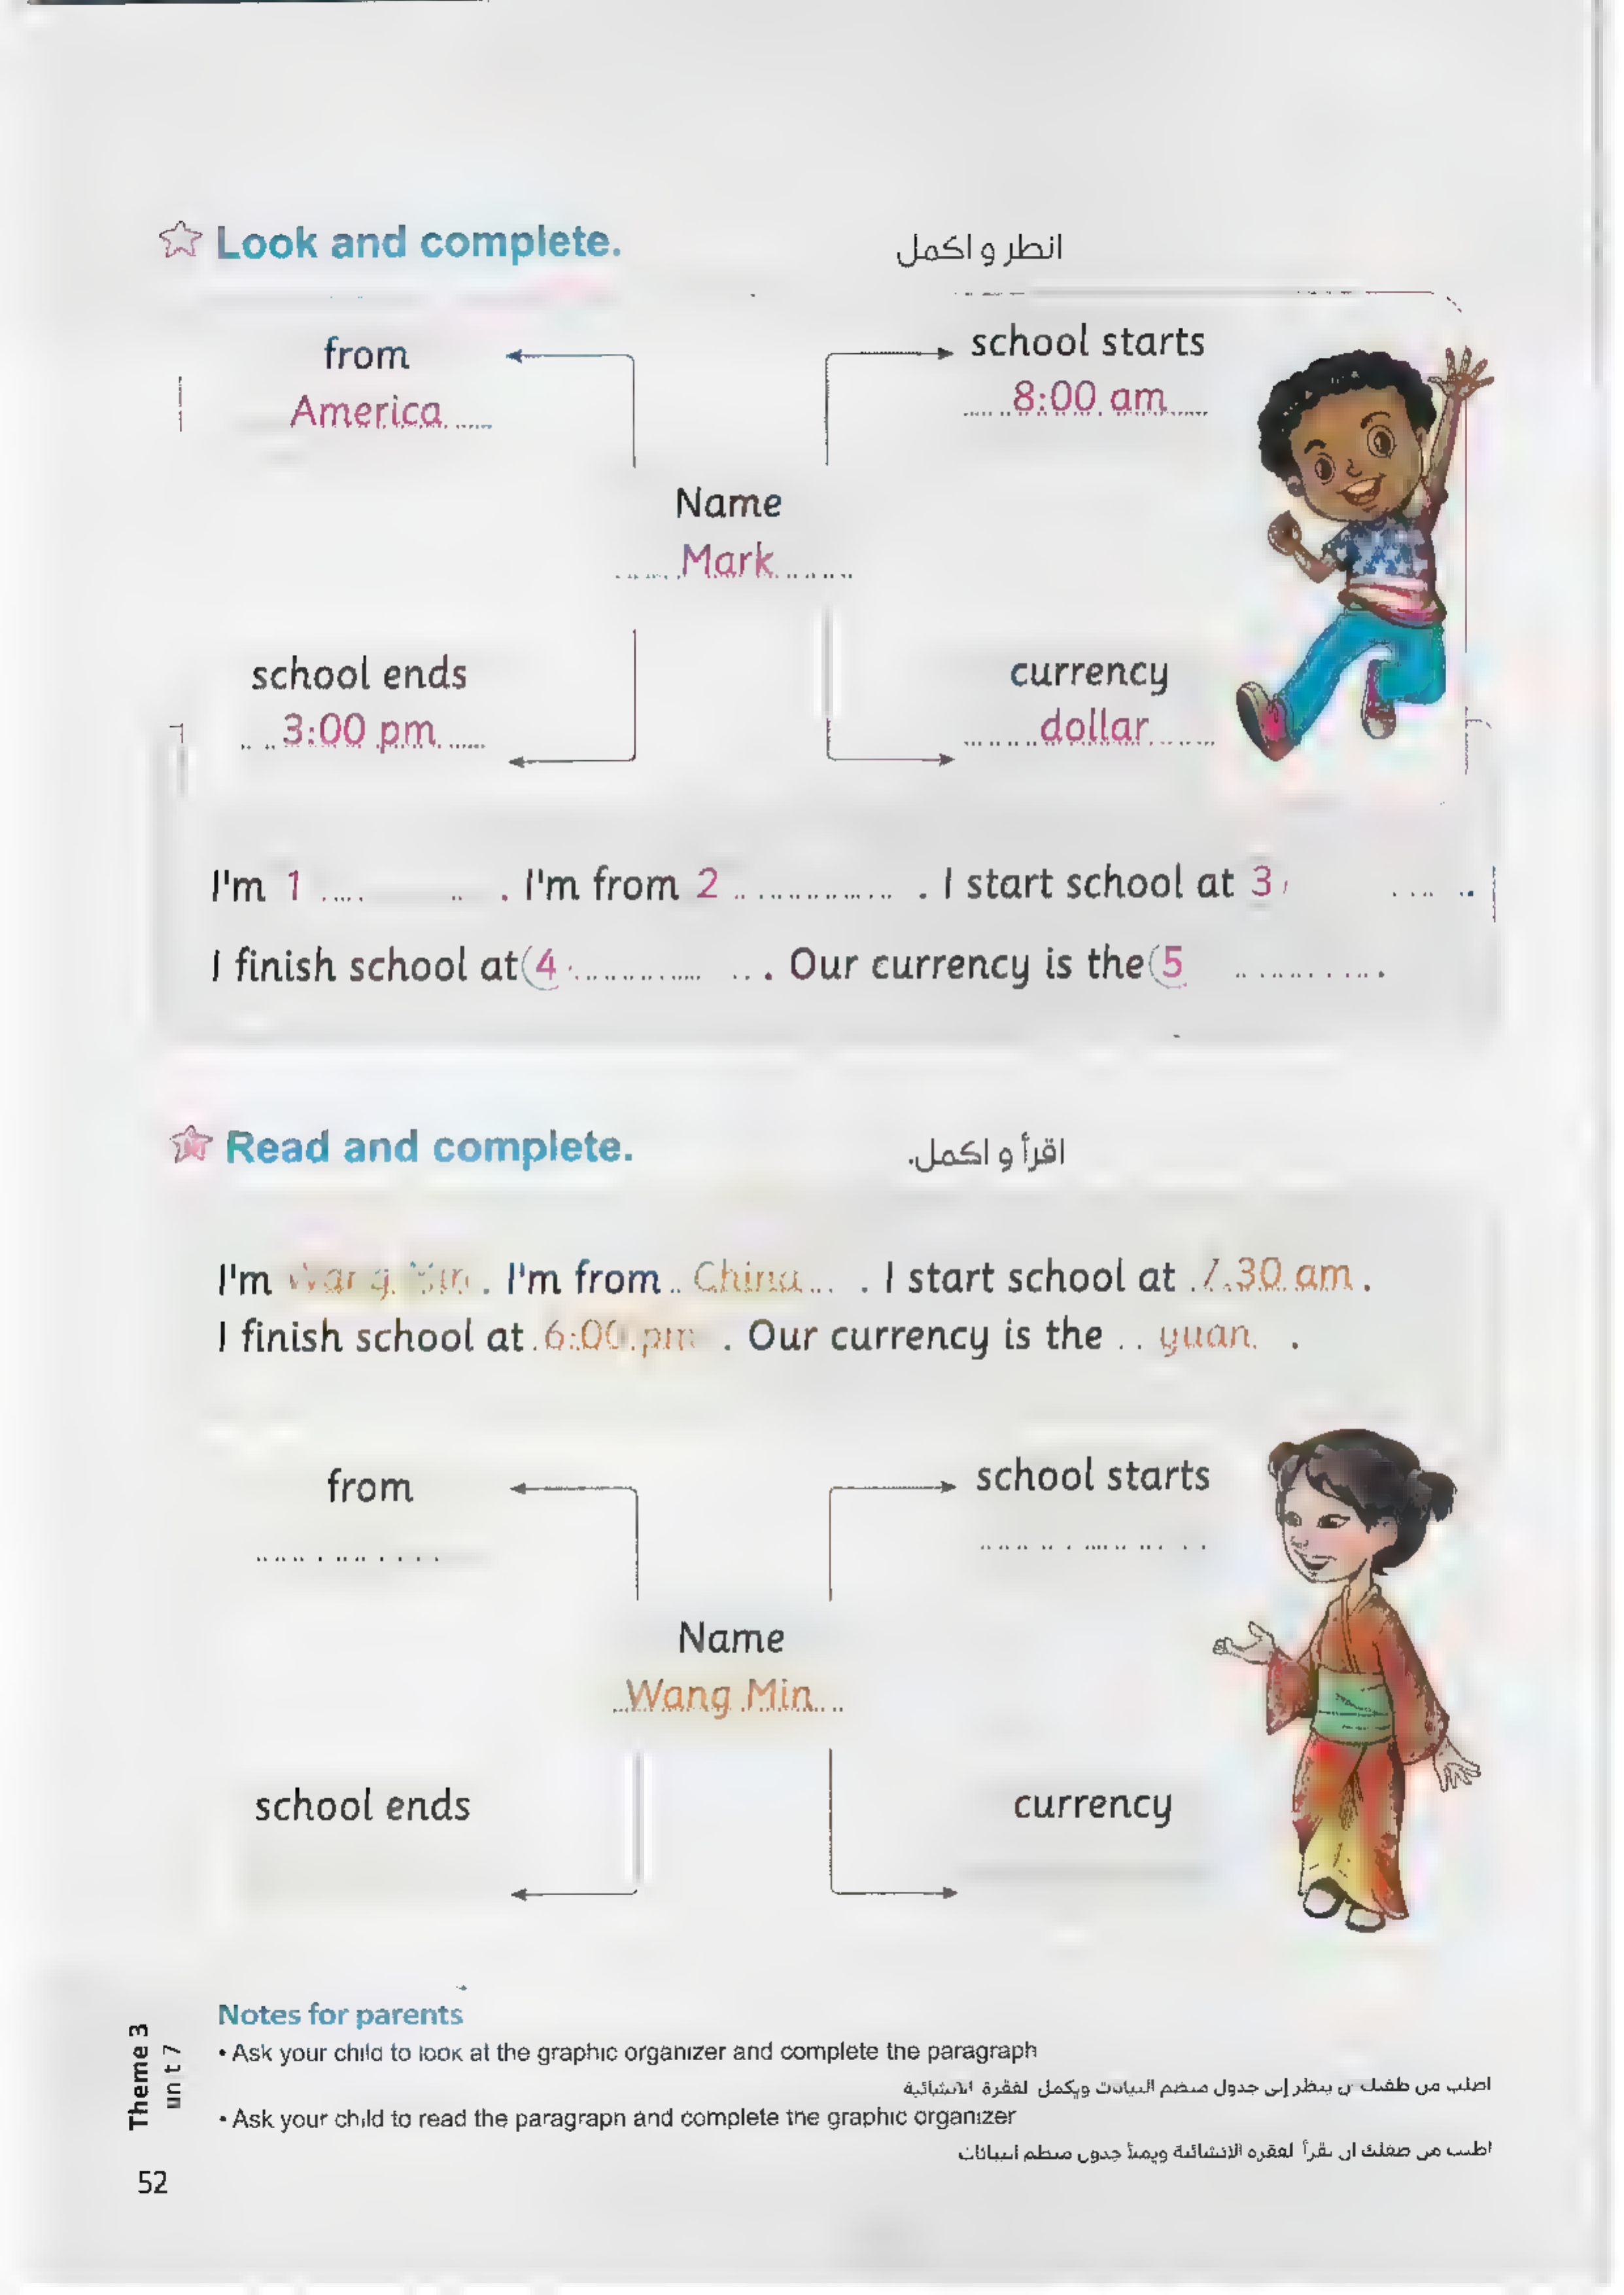 Look and complete. انظر و اكمل
from
America
school starts
8:00 am
Name
Mark
school ends
3:00 pm
currency
dollar
I'm 1 . I'm from 2 . I start school at 3
I finish school at 4 . Our currency is the 5 .
Read and complete. اقرأ و اكمل.
I'm Wang Min . I'm from China . I start school at 7.30 am .
I finish school at 6:00 pm . Our currency is the yuan .
from
school starts
Name
Wang Min
school ends
currency
Notes for parents
• Ask your child to look at the graphic organizer and complete the paragraph
اطلب من طفلك أن ينظر إلى جدول منظم البيانات ويكمل الفقرة الانشائية
• Ask your child to read the paragraph and complete the graphic organizer
اطلب من طفلك ان يقرأ الفقره الانشائية ويملأ جدول منظم البيانات
Theme 3
unit 7
52